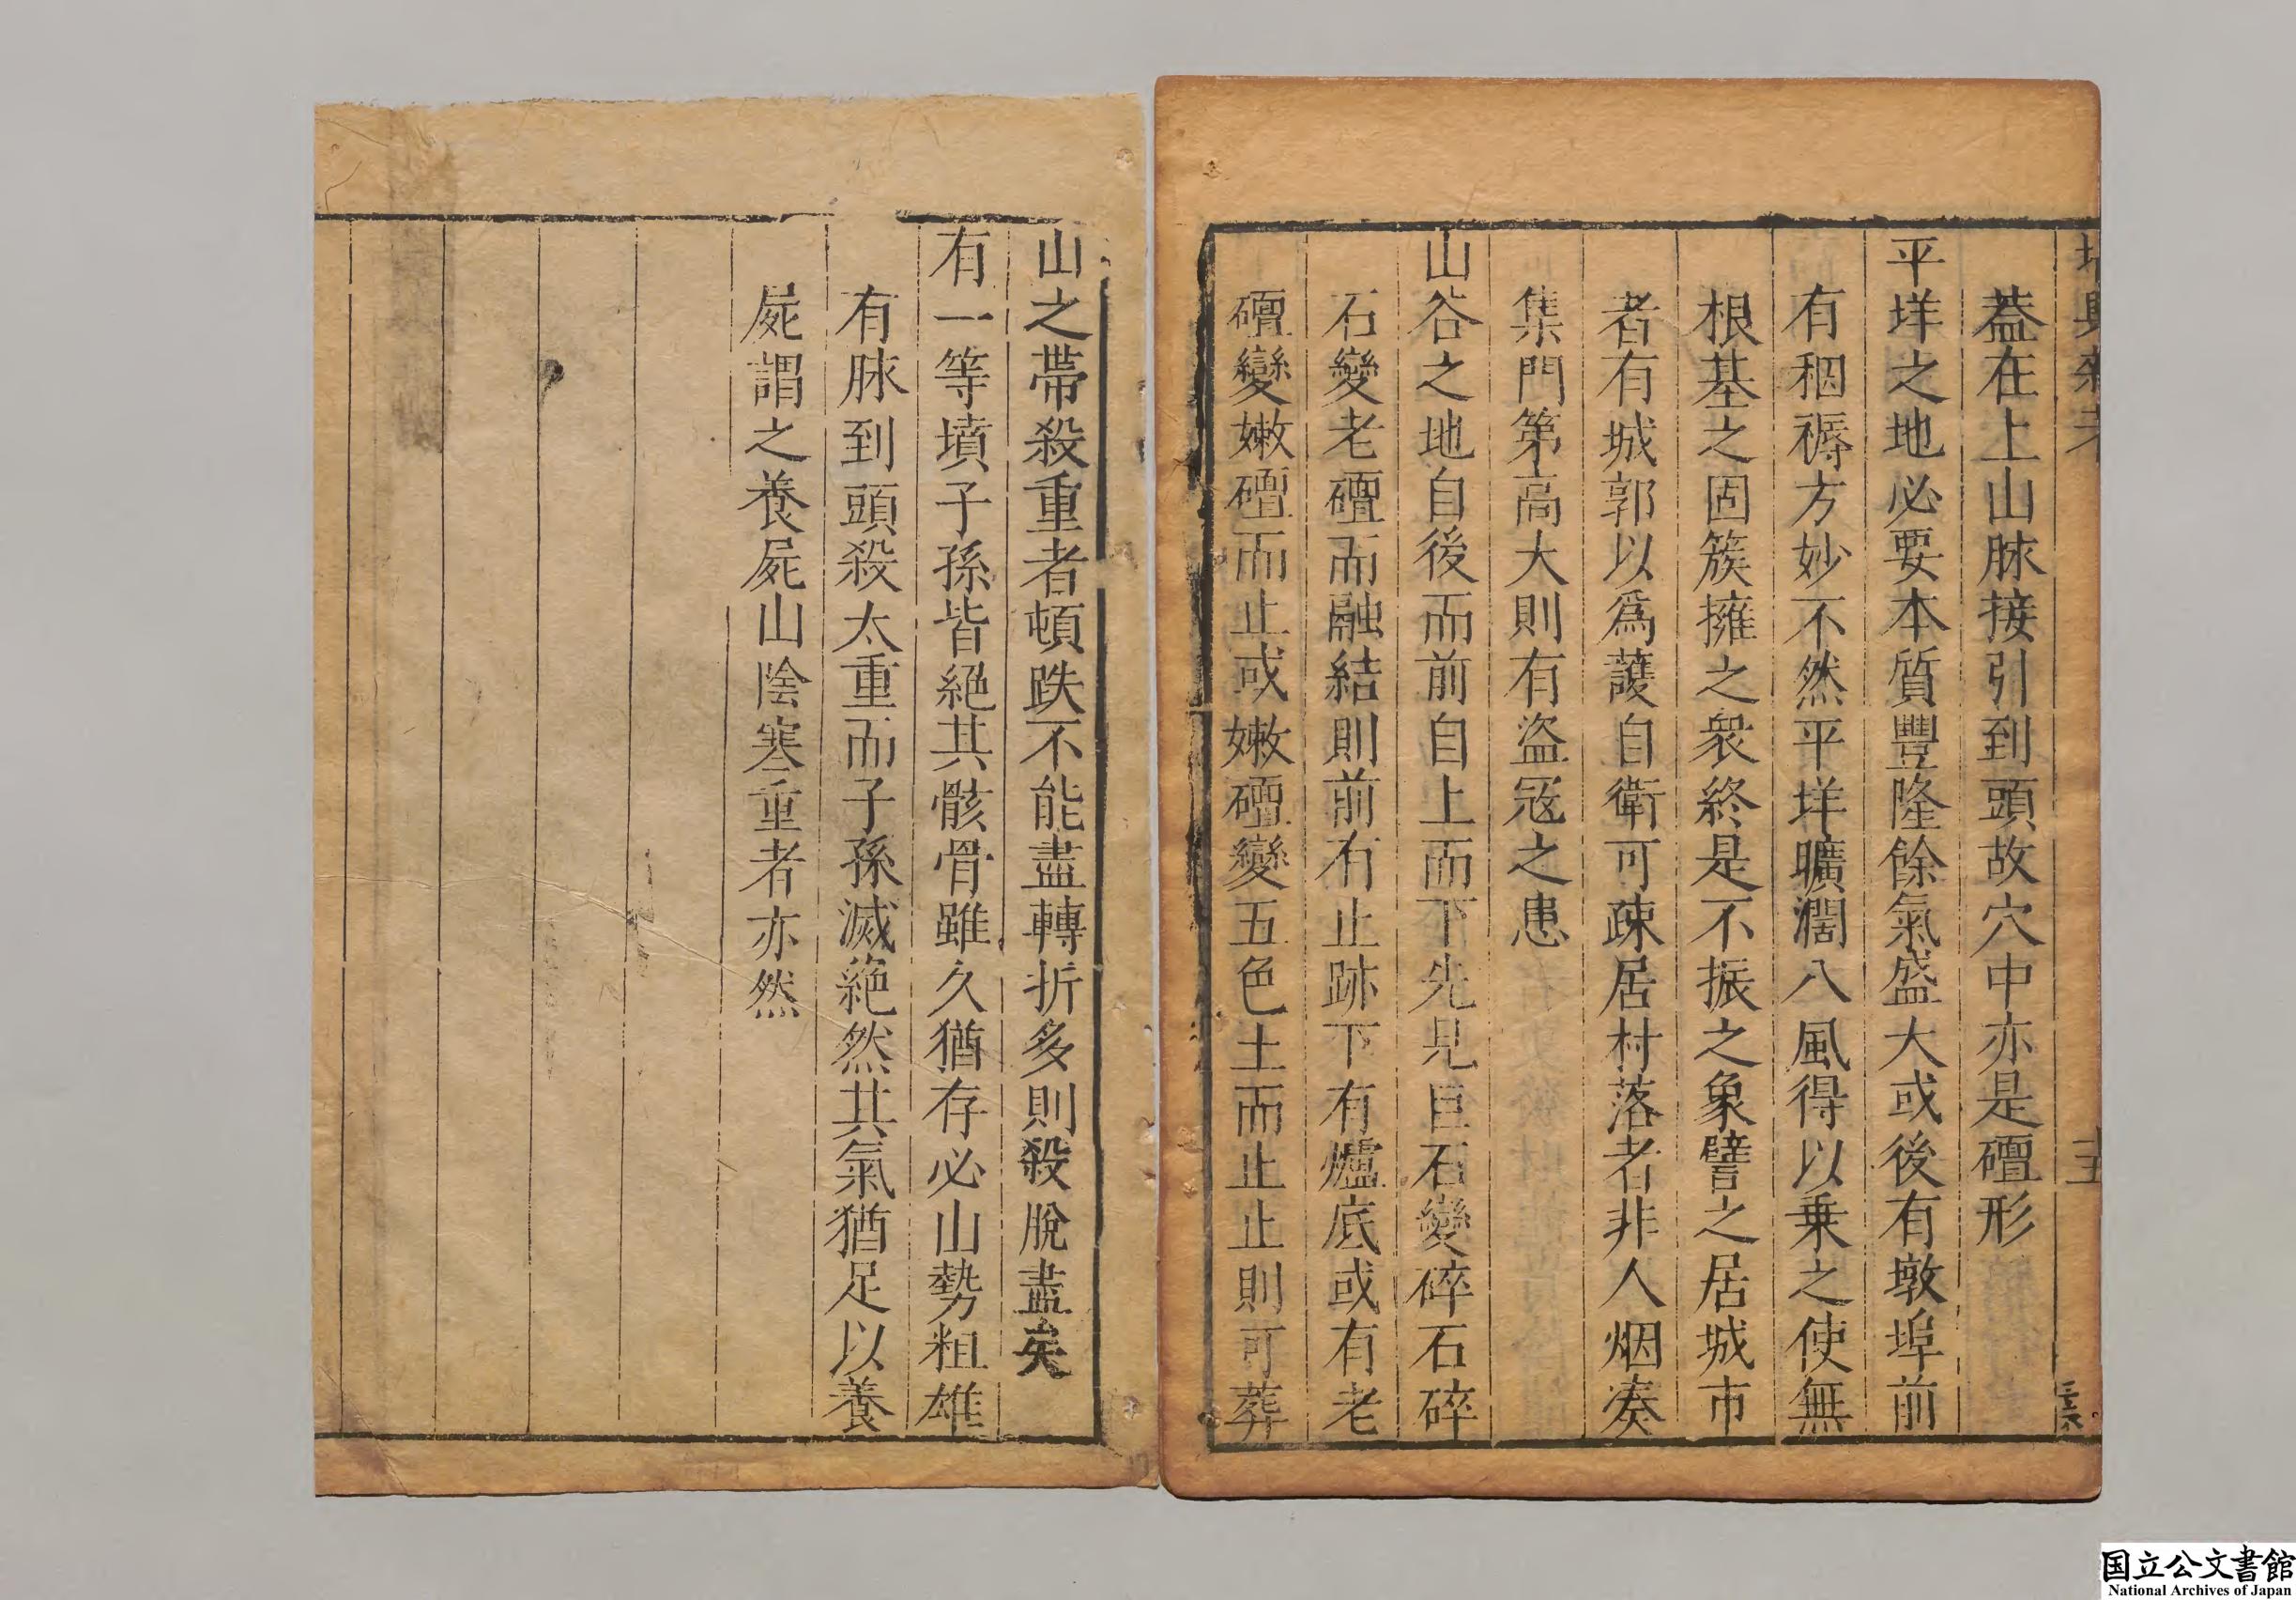 蓋在上山脉接引到頭故穴中亦是礓形
平垟之地必要本質豐隆餘氣盛大或後有墩埠前
有裀褥方妙不然平垟曠濶八風得以乗之使無
根基之固簇擁之衆終是不振之象譬之居城市
者有城郭以爲䕶自衛可疎居村落者非人烟凑
集門第高大則有盜冦之患
山谷之地自後而前自上而下先見巨石變碎石碎
石變老礓而融結則前有止跡下有爐底或有老
礓變嫩礓而止或嫩礓變五色土而止止則可葬
山之帶殺重者頓跌不能盡轉折多則殺脫盡矣
有一等墳子孫皆絕其骸骨雖久猶存必山勢粗雄
有脉到頭殺太重而子孫滅絕然其氣猶足以養
屍謂之養屍山陰寒重者亦然
国立公文書館
National Archives of Japan